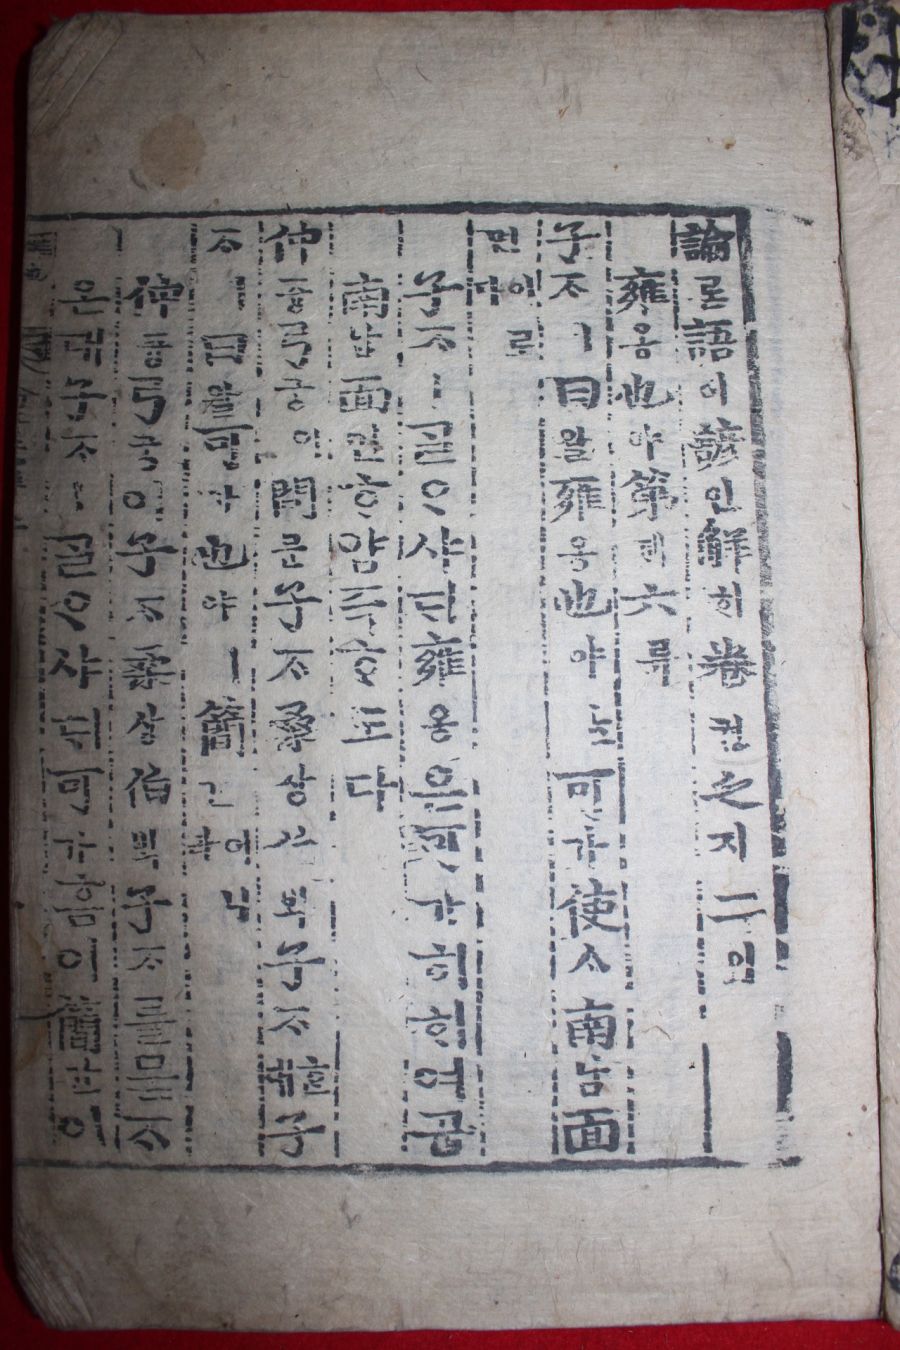 論론語어諺언解ᄒᆡ卷권之지二이
雍옹也야第뎨六륙
子ᄌᆞㅣ曰왈雍옹也야ᄂᆞᆫ可가使ᄉᆞ南남面
면이로다
子ᄌᆞㅣᄀᆞᆯᄋᆞ샤ᄃᆡ雍옹은可가히ᄒᆞ여곰
南남面면ᄒᆞ암즉ᄒᆞ도다
仲듕弓궁이問문子ᄌᆞ桑상伯ᄇᆡᆨ子ᄌᆞᄒᆞᆫ대子
ᄌᆞㅣ曰왈可가也야ㅣ簡간이니라
仲듕弓궁이子ᄌᆞ桑상伯ᄇᆡᆨ子ᄌᆞ를믇ᄌᆞ
온대子ᄌᆞㅣᄀᆞᆯᄋᆞ샤ᄃᆡ可가홈이簡간이